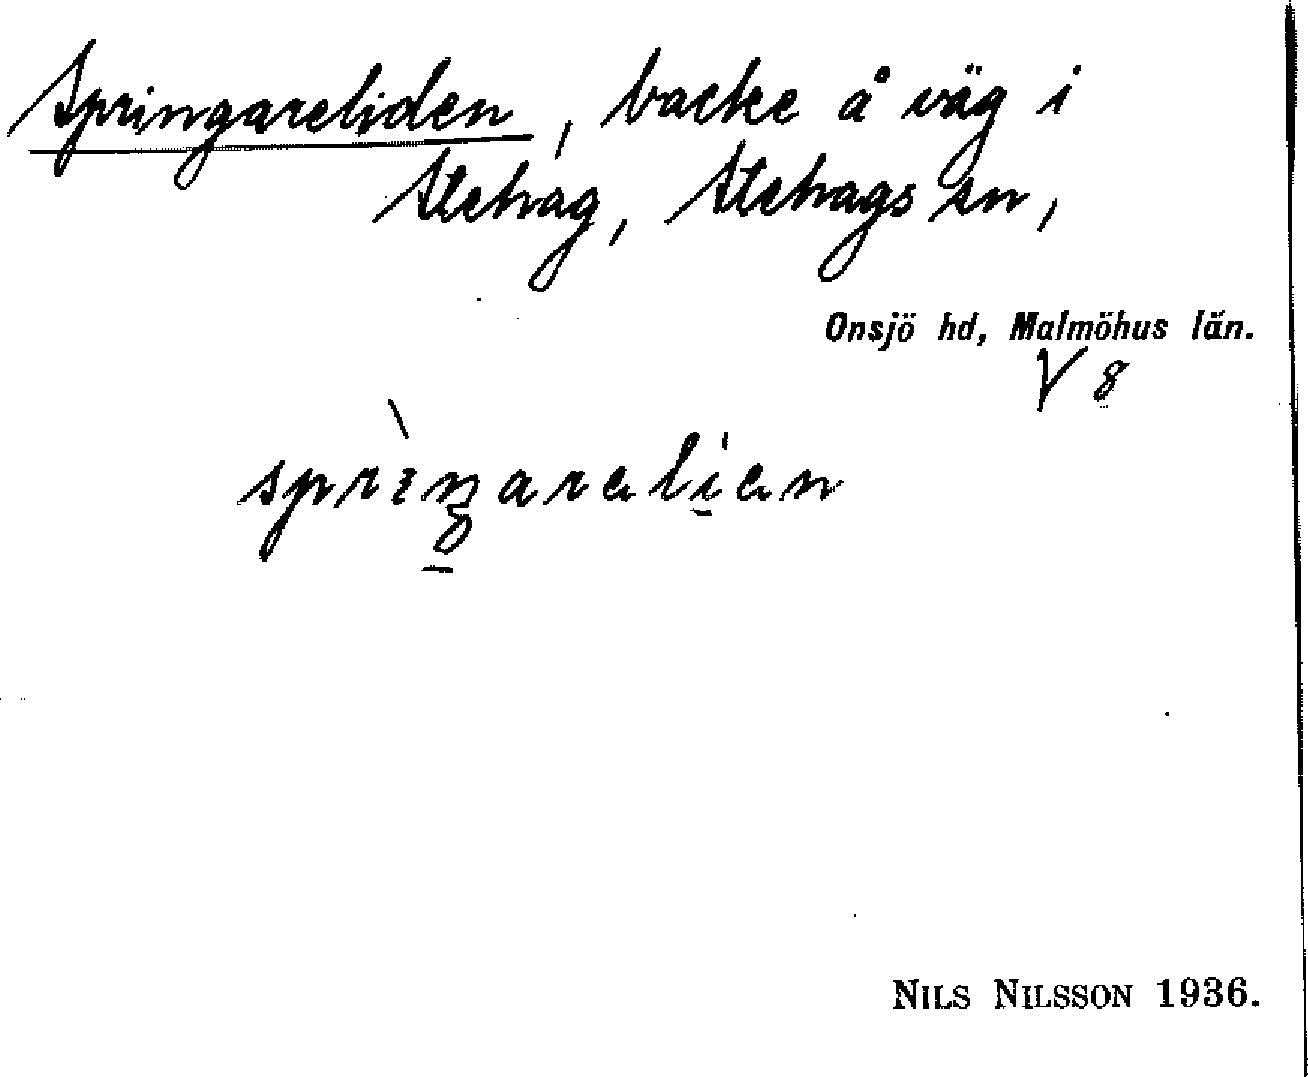 Springareliden, backe å väg i
Stehag, Stehags sn,
Onsjö hd, Malmöhus län.
V 8
sprìŋarelien
NILS NILSSON 1936.